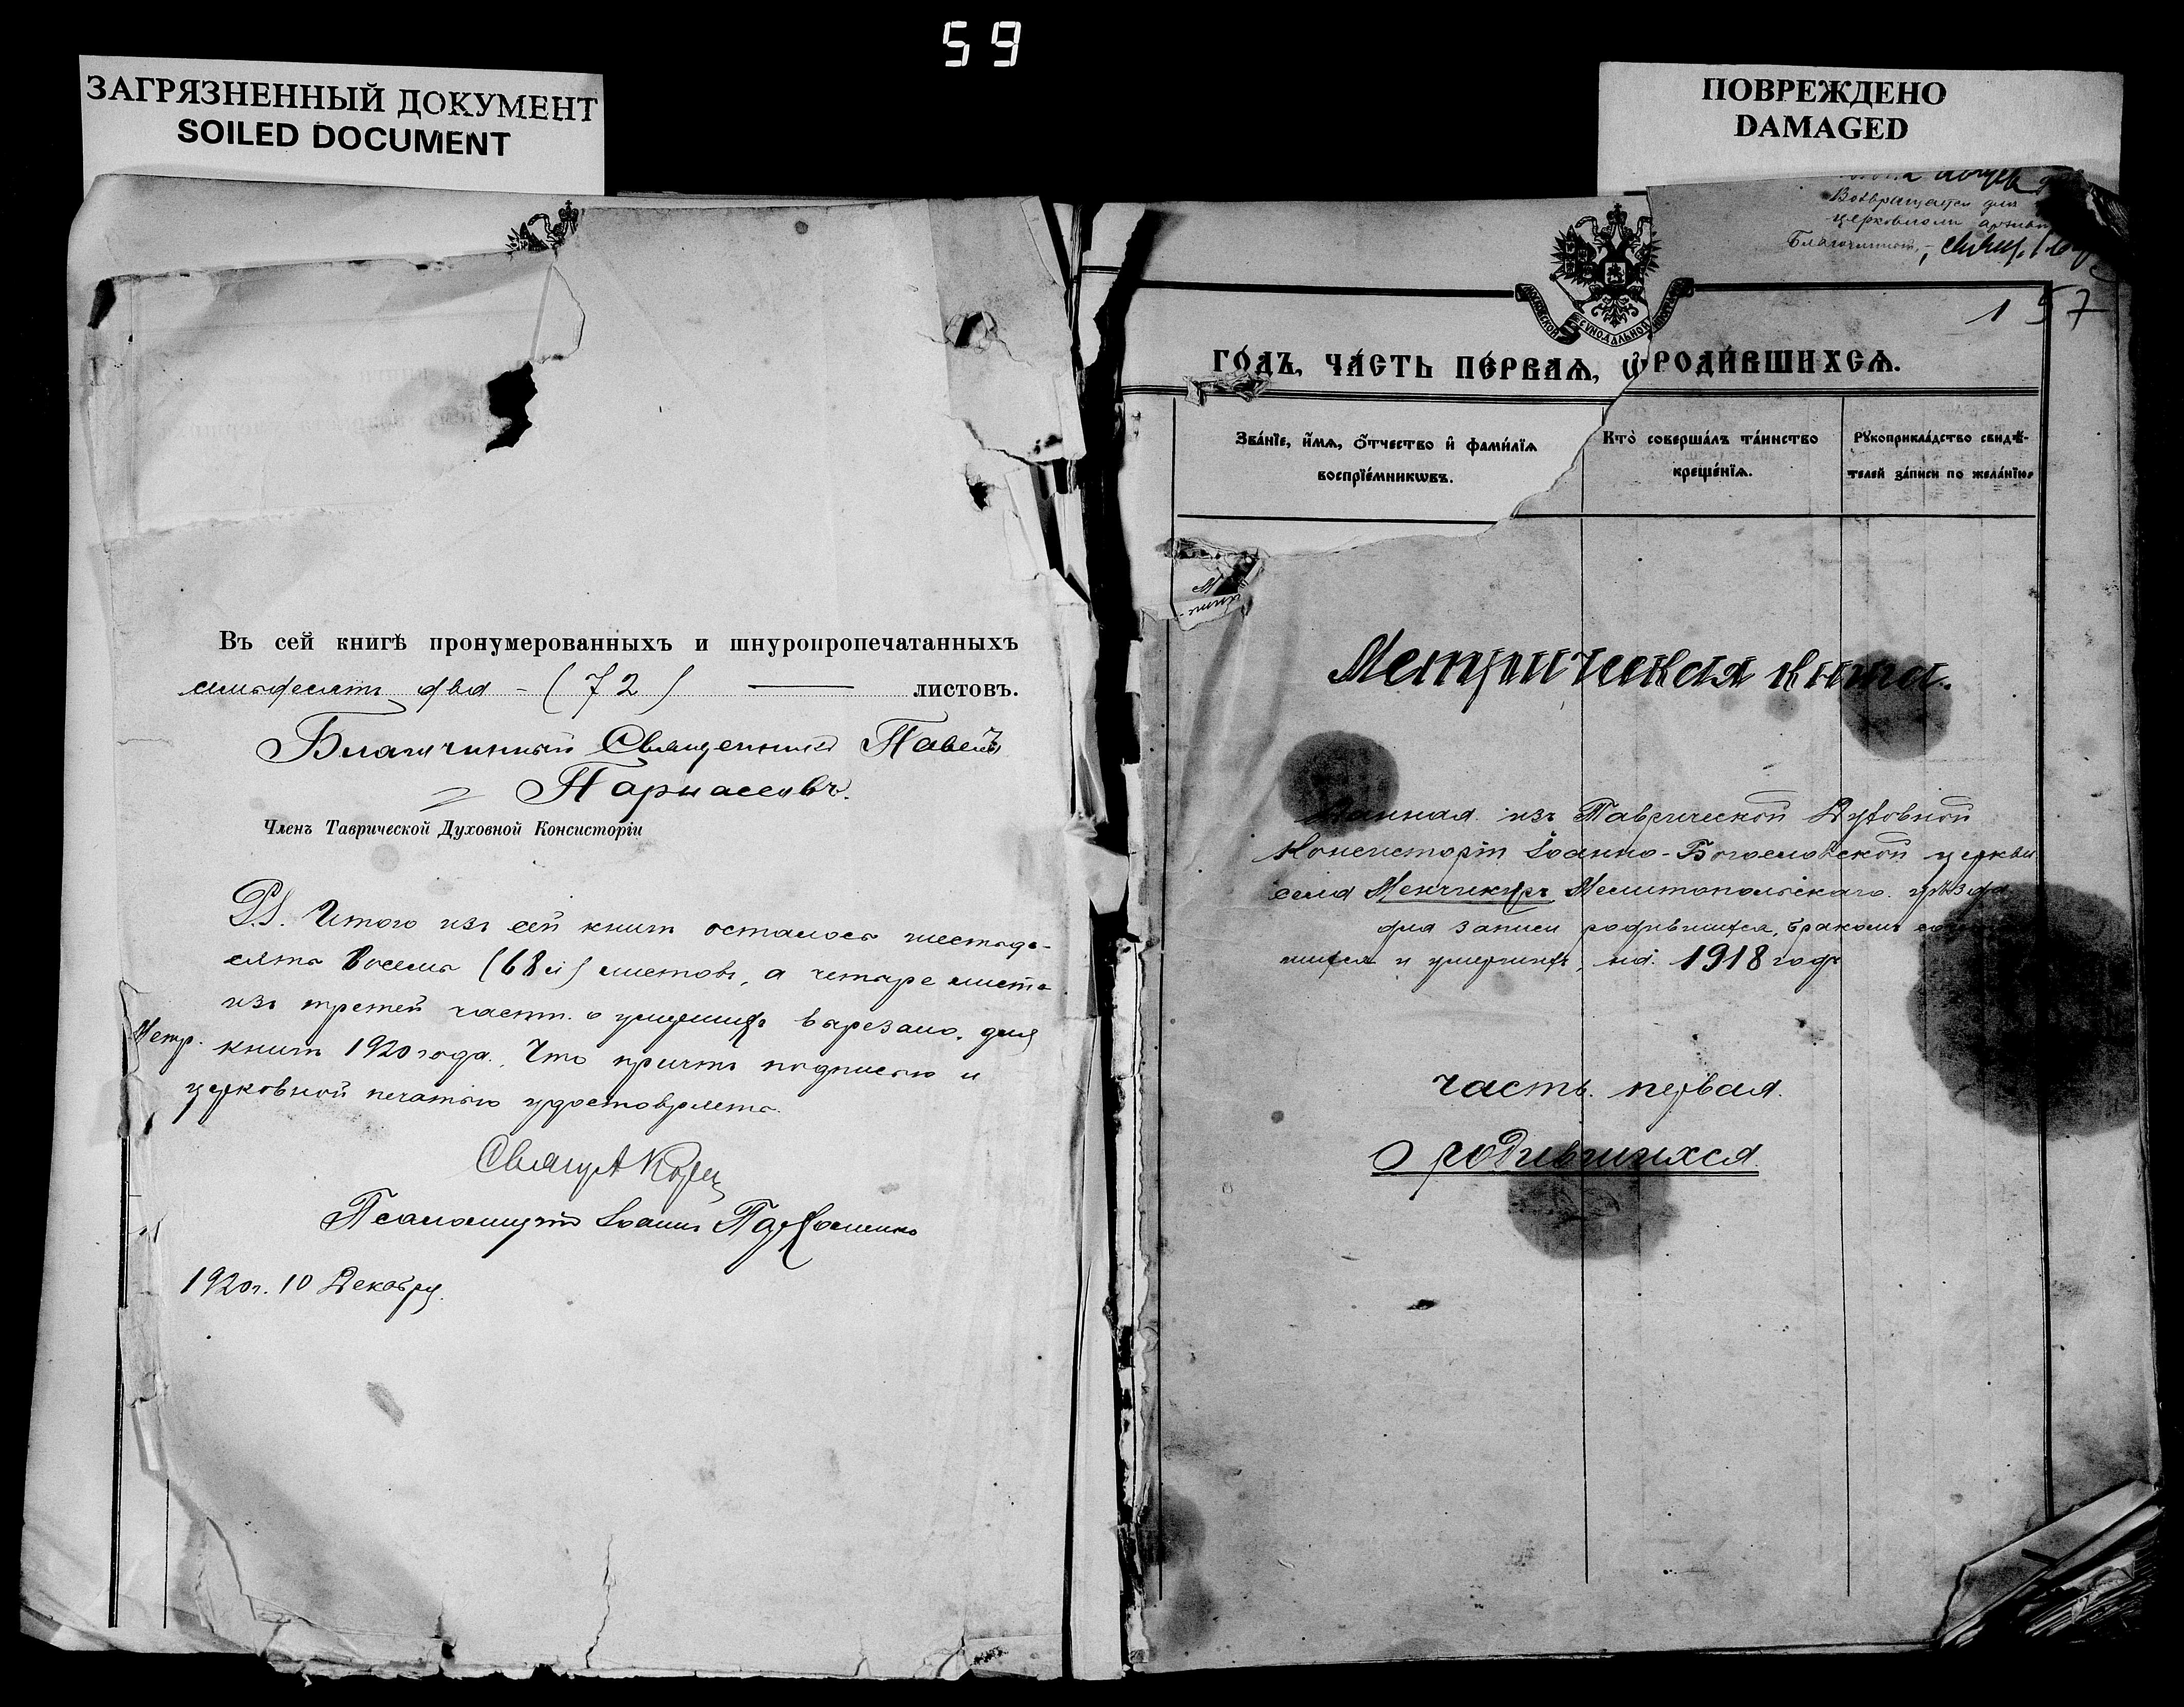 59
ЗАГРЯЗНЕННЫЙ ДОКУМЕНТ
SOILED DOCUMENT
Въ сей книгѣ пронумерованныхъ и шнуропропечатанныхъ
семьдесятъ два - (72) — листовъ.
Благочинный Священникъ Павелъ
Парнассовъ.
Членъ Таврической Духовной Консисторіи
P.S. Итого изъ сей книги осталось шестьде-
сятъ восемь (68 л) листовъ, а четыре листа
изъ третей части о умершихъ вырезано для
Метр. книги 1920 года. Что причтъ подписью и
церковной печатью удостоверяетъ.
Свящ А
Псаломщикъ Іоаннъ Пархоменко
1920 г. 10 Декабря.
ПОВРЕЖДЕНО
DAMAGED
Возвращается для
церковном
Благочинный, -
1 57
СУНОДАЛЬНОЙ
ГО́ДЪ, ЧА́СТЬ ПЕ́РВАѦ, Ѡ҆ РОДИ́ВШИХСѦ.
Зва́нїе, и҆́мѧ, ѻ҆́тчество и҆ фами́лїѧ
воспрїе́мникѡвъ.
Кто̀ соверша́лъ та́инство
креще́нїѧ.
Рꙋкоприкла́дство свидѣ́-
телей за́писи по жела́нїю
Метрическая книга.
Данная изъ Таврической Духовной
Консисторіи Іоанно-Богословской церкви
села Менчикуръ Мелитопольскаго уѣзда
для записи родившихся, бракомъ соче
шихся и умершихъ, на 1918 годъ
часть первая.
О родившихся